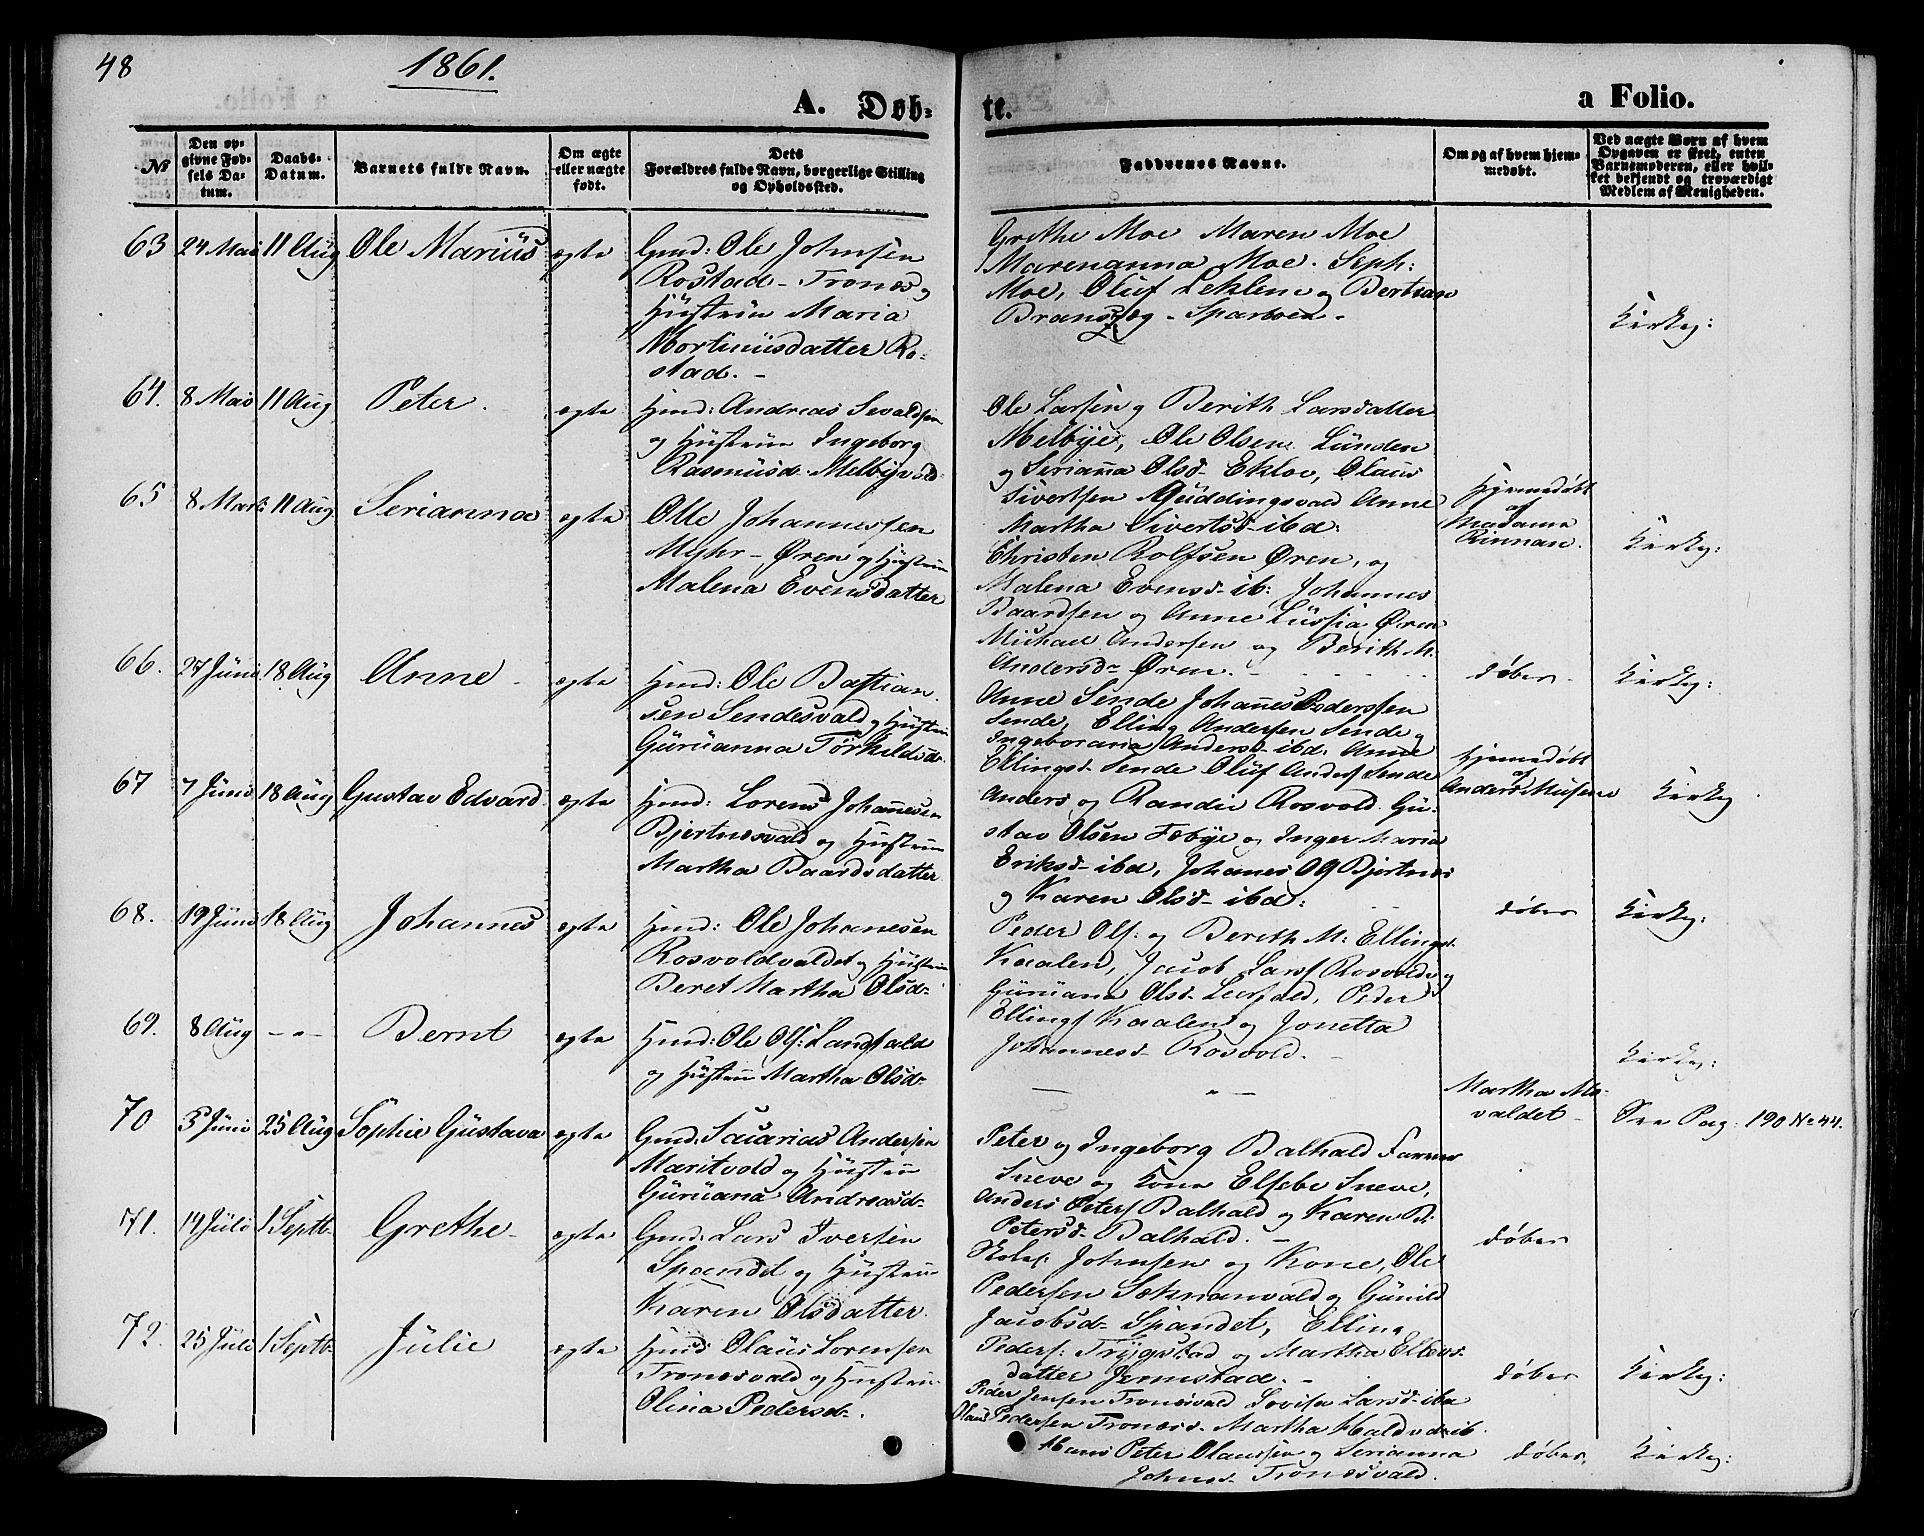 48
1861.
A. Døb-
te.
a Folio.
No
Den op-
givne Fød-
sels Da-
tum.
Daabs-
Datum.
Barnets fulde Navn.
Om ægte
eller uægte
født.
Dets
Forældres fulde Navn, borgerlige Stilling
og Opholdssted.
Faddernes Navne.
Om og af hvem hjem-
medøbt.
Ved uægte Børn af hvem
Opgaven er skeet, enten
Barnemoderen, eller hvil-
ket bekjendt og troværdigt
Medlem af Menigheden.
63 24 Mai 11 Aug Ole Marius ægte Gmd: Ole Johnsen
Rostad - Tronæs og
Hustrue Maria
Mortinusdatter Ro-
stad. -
Grethe Moe Maren Moe
Marenanna Moe. Seph:
Moe, Oluf Leklem og Bertran
Bransæg - Sparboen -
Kirkeg:
64. 8 Mai 11 Aug Peter. ægte Hmd: Andreas Sevaldsen
og Hustrue Ingeborg
Rasmusd. Melbye
Ole Larsen og Berith Larsdatter
Melbye, Ole Olsen Lunden
og Serianna Olsd- Ekloe, Olaus
Sivertsen Muddingsvald Anne
Martha Sivertsd- ibd:
Hjemmedøbt
af
Madame
Rinnan.
Kirkeg:
65 8 Marts 11 Aug Serianna ægte Olle Johannessen
Myhr - Øren og Hustrue
Malena Evensdatter
Christen Rolfsen Øren, og
Malena Evensd- ib: Johannes
Baardsen og Anne Lussia Øren
Michael Andersen og Berith M.
Andersd- Øren. -
døber
Kirkeg:
66. 27 Juni 18 Aug Anne - ægte Hmd: Ole Bastian
sen Sendesvald og Hustrue
Guruanna Torkildsd-
Anne Sende Johannes Pedersen
Sende, Elling Andersen Sende og
Ingeborganna Andersd- ibd. Anne
Ellingsd- Sende Oluf Anders Sende
Hjemmedøbt
af
Anders Musum
Kirkeg
67 7 Juni 18 Aug Gustav Edvard ægte Hmd: Lorens Johannesen
Bjertnesvald og Hustrue
Martha Baardsdatter
Anders og Randie Rosvold Gu-
stav Olsen Fæbye og Inger Maria
Eriksd- ibd, Johanes OG Bjertnes
og Karen Olsd- ibd:
døber
Kirkeg:
68. 19 Juni 18 Aug Johannes ægte Hmd: Ole Johanesen
Rosvoldvaldet og Hustrue
Beret Martha Olsd-
Peder Ols: og Berith M: Ellingsd-
Kaalen, Jacob Lars Rosvold og
Guruana Olsd- Leirfald, Peder
Ellings Kaalen og Jonetta
Johannesd- Rosvold. -
Kirkeg:
69. 8 Aug - " - Bernt ægte Hmd: Ole Ols: Langfald
og Hustrue Martha Olsd-
- " -
Martha Mo-
valdet -
See Pag: 190 No 44.
70 5 Juni 25 Aug Sophie Gustava ægte Gmd: Sacarias Andersen
Maritvold og Hustrue
Guruana Andreasd-
Peter og Ingeborg Balhald
Sneve og Kone Elsebe Sneve,
Anders Peters Balhald og Karen B.
Petersd- Balhald. -
døber
71. 14 Juli 1 Septb- Grethe - ægte Gmd: Lars Iversen
Spandet og Hustrue
Karen Olsdatter.
Johnsen og Kone, Ole
Pedersen Sæknanvald og Gunild
Jacobsd- Spandet, Elling
Peders: Trygstad og Martha Ellens-
datter Jermstad. -
døber
Kirkeg:
72. 25 Juli 1 Septb- Julie ægte Hmd Olaus Lorensen
Tronesvald og Hustrue
Olina Pedersd-.
Peder Jensen Tronesvald Lovise Larsd- ibd
Olaus Pedersen Tronæs- Martha Haldvd- ib.
Hans Peter Olaussen og Serianna
Johnsd- Tronæsvald.
døber.
Kirkeg: